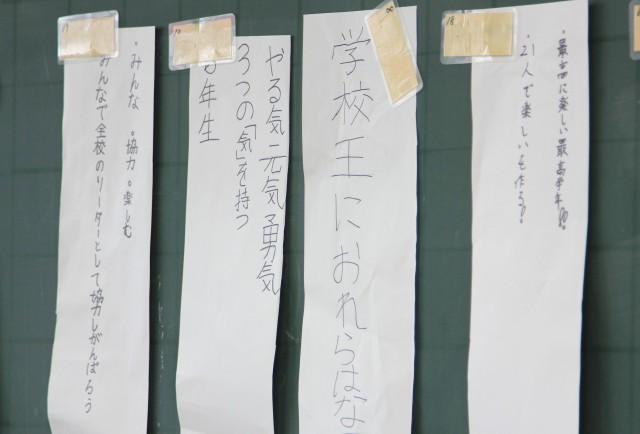 ・最高に楽しい最高学年!!
・21人で楽しいを作る!
学校王におれらはな
やる気 元気 勇気
3つの「気」を持つ
年生
・みんな 。協力 。楽しむ
みんなで全校のリーダーとして協力しがんばろう
18